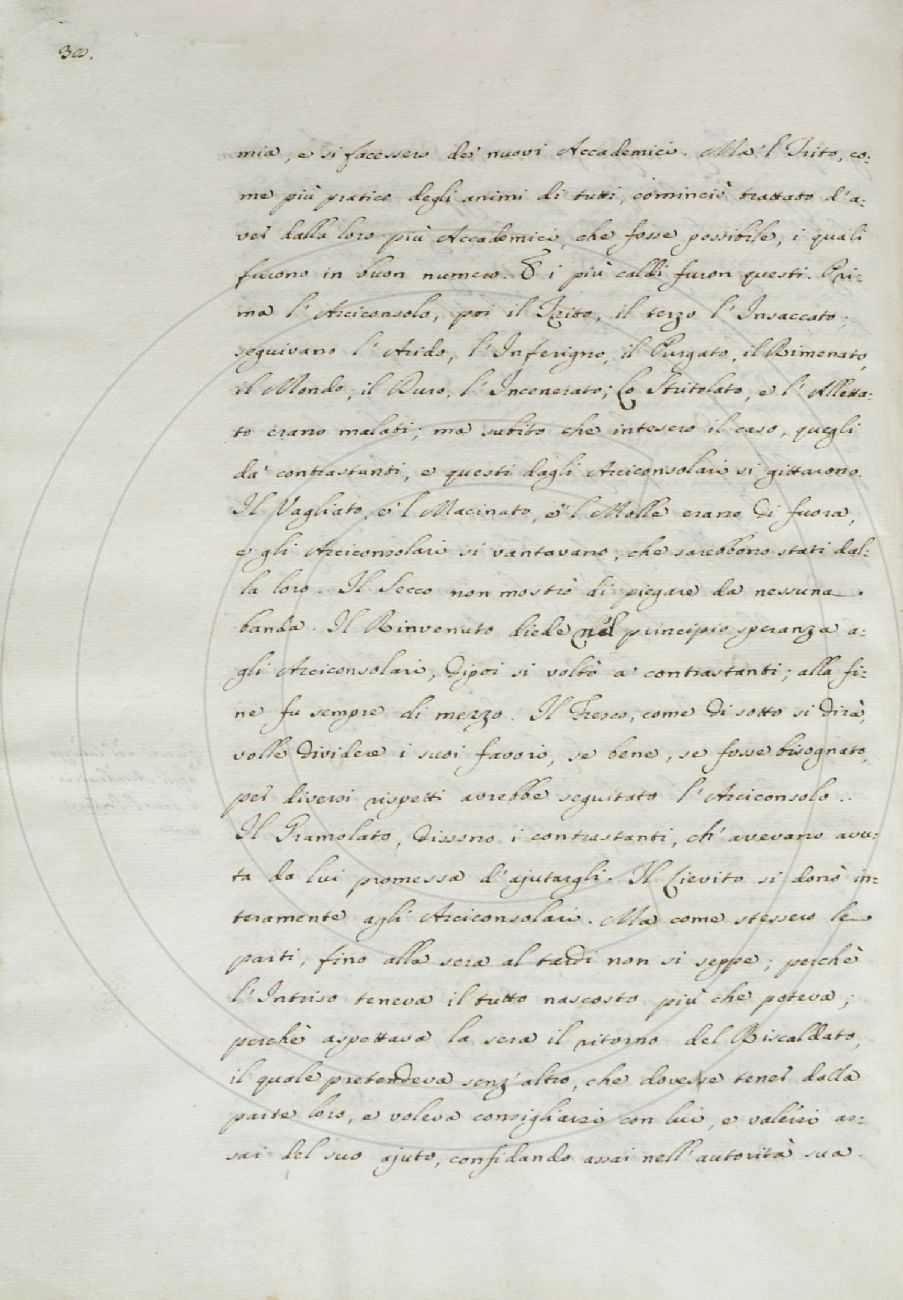 38.
mia, e si facessero de' nuovi Accademici. Ma 'l Trito, co:
me più pratico degli animi di tutti, cominciò trattato d'a:
ver dalla loro più Accademici, che fosse possibile, i quali
furono in buon numero. E i più caldi furon questi. Pri:
ma l'Arciconsolo, poi il Trito, il terzo l'Insaccato;
seguivano l'Arido, l'Inferigno, il Purgato, il Rimenato,
il Mondo, il Duro, l'Incenerato; Lo Stritolato, e l'Alletta:
to erano malati; ma subito che intesero il caso, quegli
da' contrastanti, e questi dagli Arciconsolari si gittarono.
Il Vagliato, e 'l Macinato, e 'l Molle erano di fuora,
e gli Arciconsolari si vantavano, che sarebbono stati dal:
la loro. Il Secco non mostrò di piegare da nessuna
banda. Il Rinvenuto diede nel principio speranza a:
gli Arciconsolari, dipoi si voltò a' contrastanti; alla fi:
ne fu sempre di mezzo. Il Fresco, come di sotto si dirà,
volle dividere i suoi favori, se bene, se fosse bisognato,
per diversi rispetti avrebbe seguitato l'Arciconsolo.
Il Gramolato, dissono i contrastanti, ch'avevano avu:
ta da lui promessa d'ajutargli. Il Lievito si donò in:
teramente agli Arciconsolari. Ma come stessero le
parti, fino alla sera al tardi non si seppe; perchè
l'Intriso teneva il tutto nascosto più che poteva;
perchè aspettava la sera il ritorno del Riscaldato,
il quale pretendeva senz'altro, che dovesse tener dalla
parte loro, e voleva consigliarsi con lui, e valersi as:
sai del suo ajuto, confidando assai nell'autorità sua.